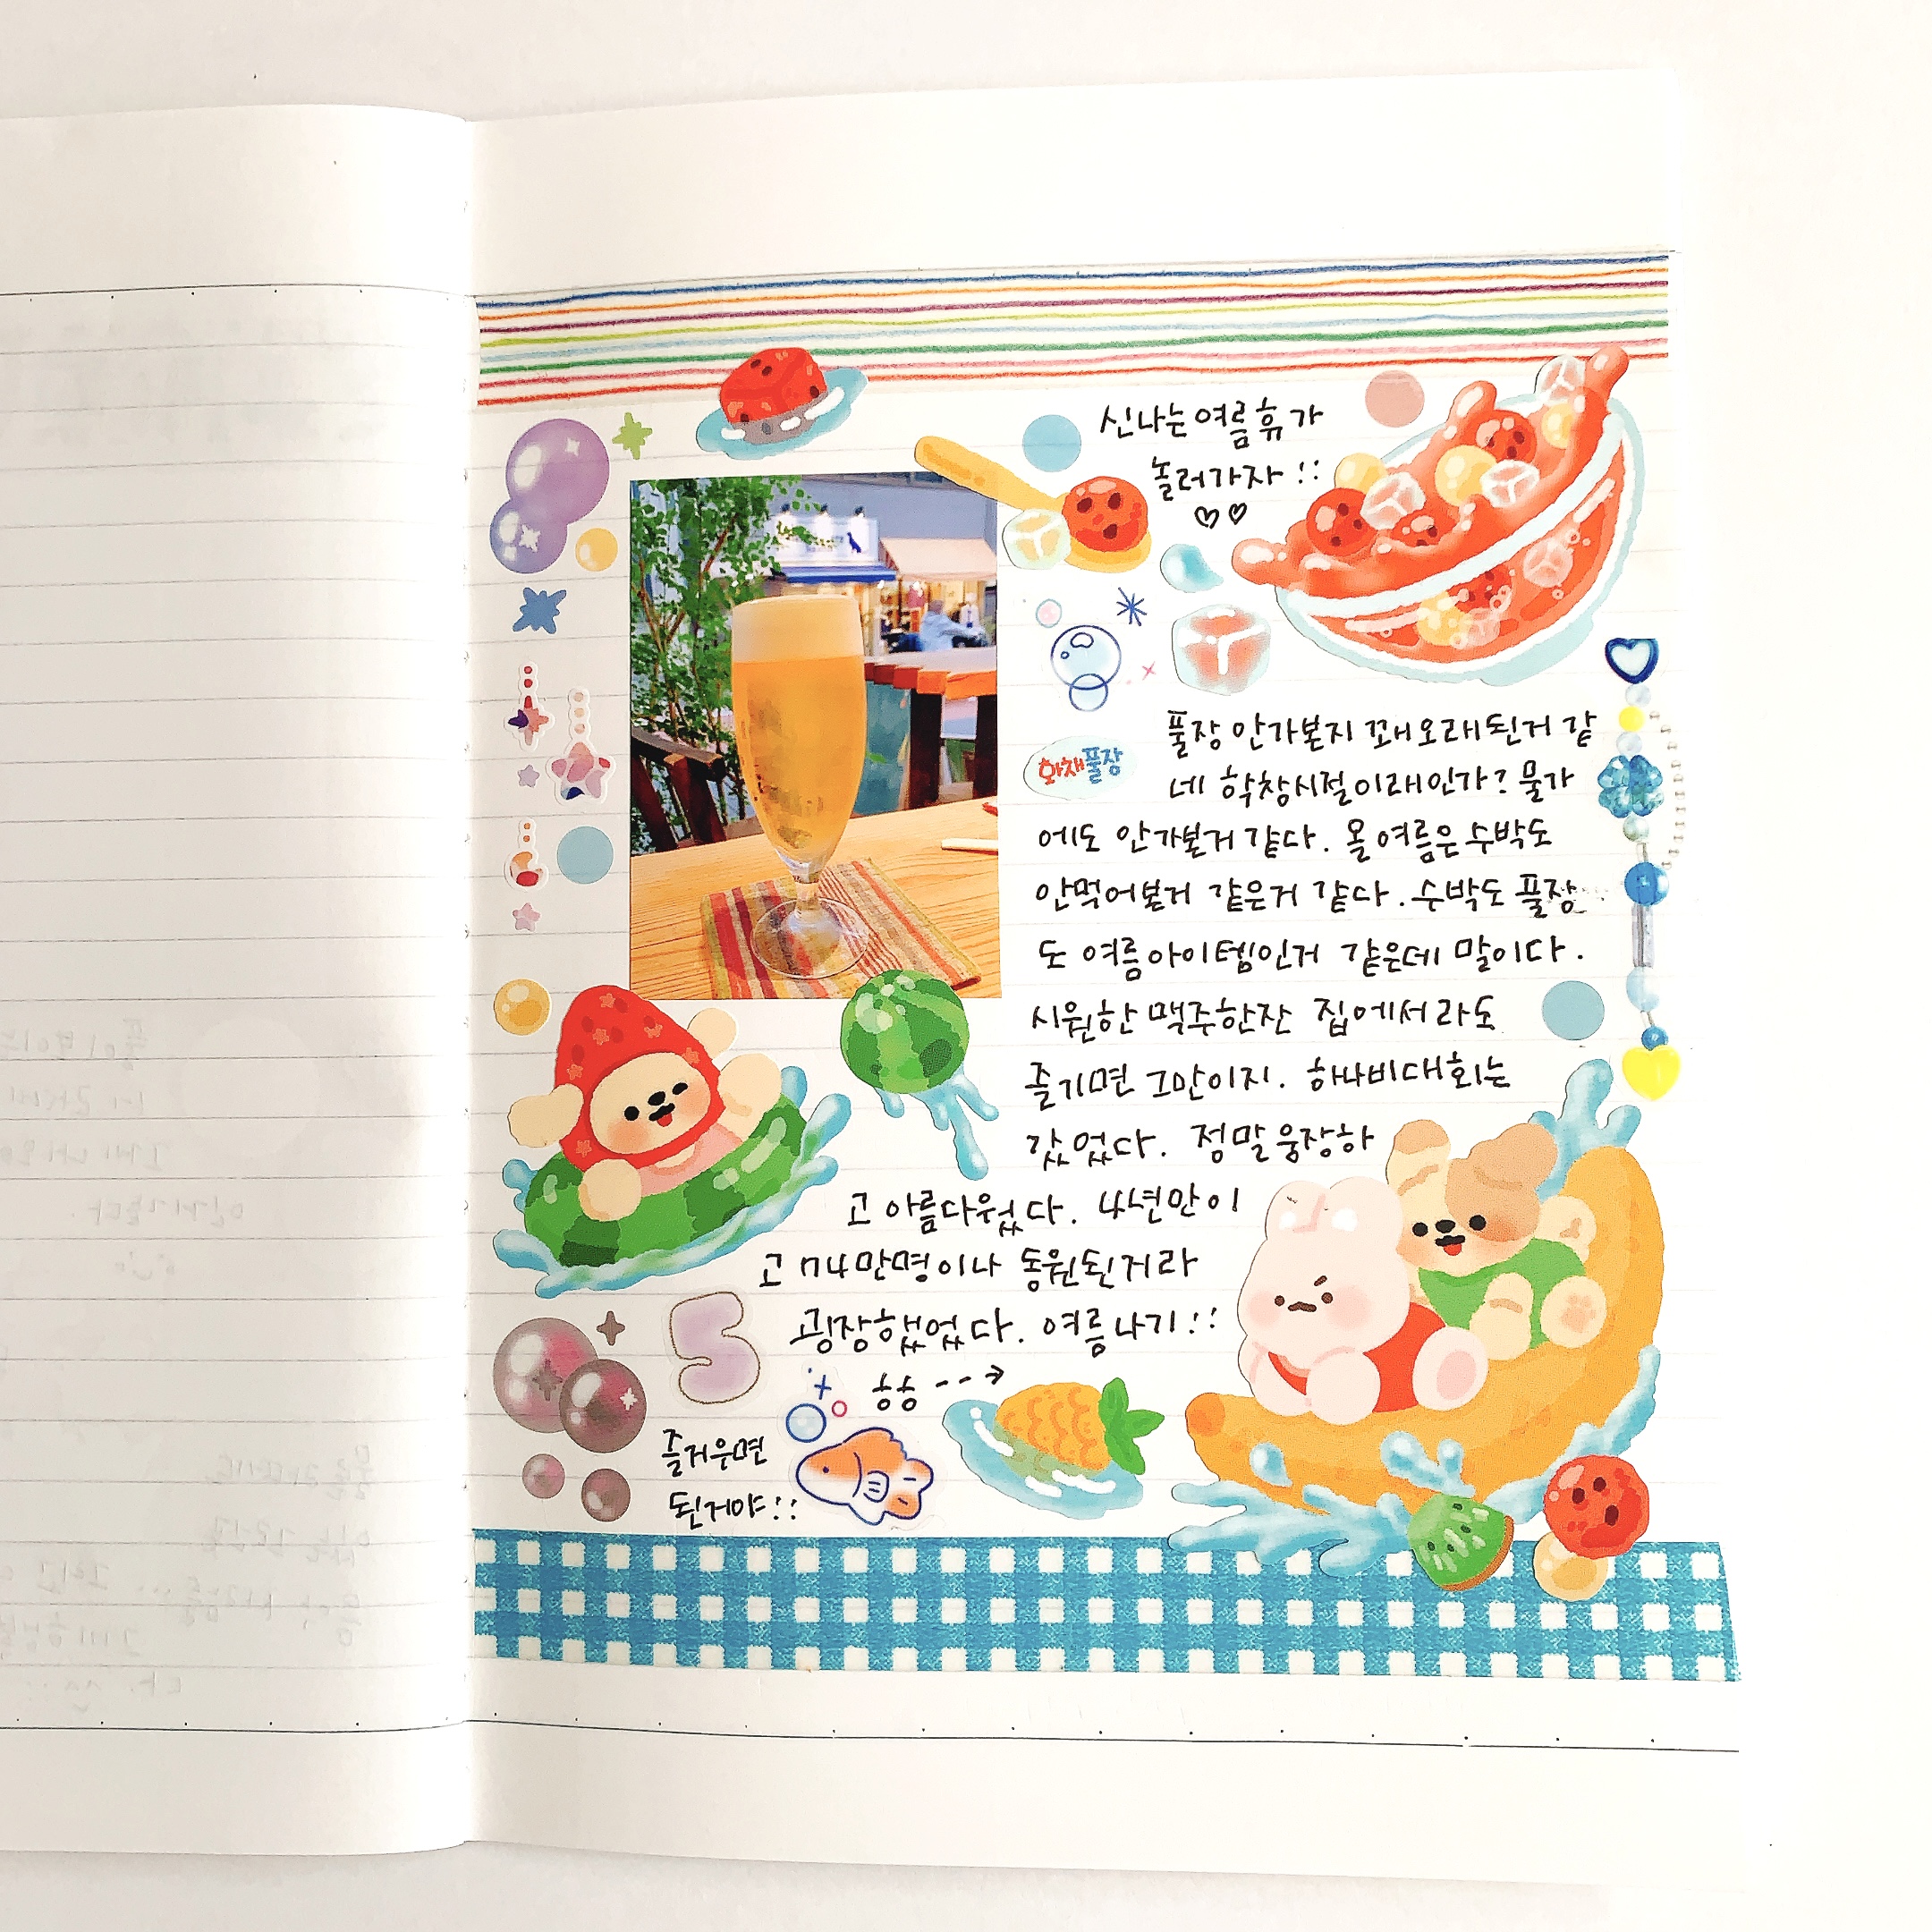 신나는 여름 휴가
놀러가자!!
화채풀장
풀장 안가본지 꽤 오래된거 같
네 학창시절이래인가? 물가
에도 안가본거 같다. 올 여름은 수박도
안먹어본거 같은거 같다. 수박도 풀장
도 여름아이템인거 같은데 말이다.
시원한 맥주한잔 집에서라도
즐기면 그만이지. 하나비대회는
갔었다. 정말 웅장하
고 아름다웠다. 4년만이
고 74만명이나 동원된거라
굉장했었다. 여름나기!!
5
ㅎㅎ
즐거우면
된거야!!